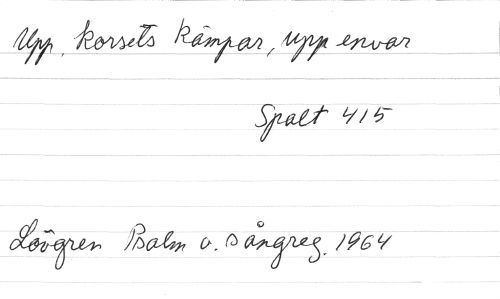 Upp, korsets kämpar, upp envar
Spalt 415
Lövgren Psalm o. sångreg. 1964